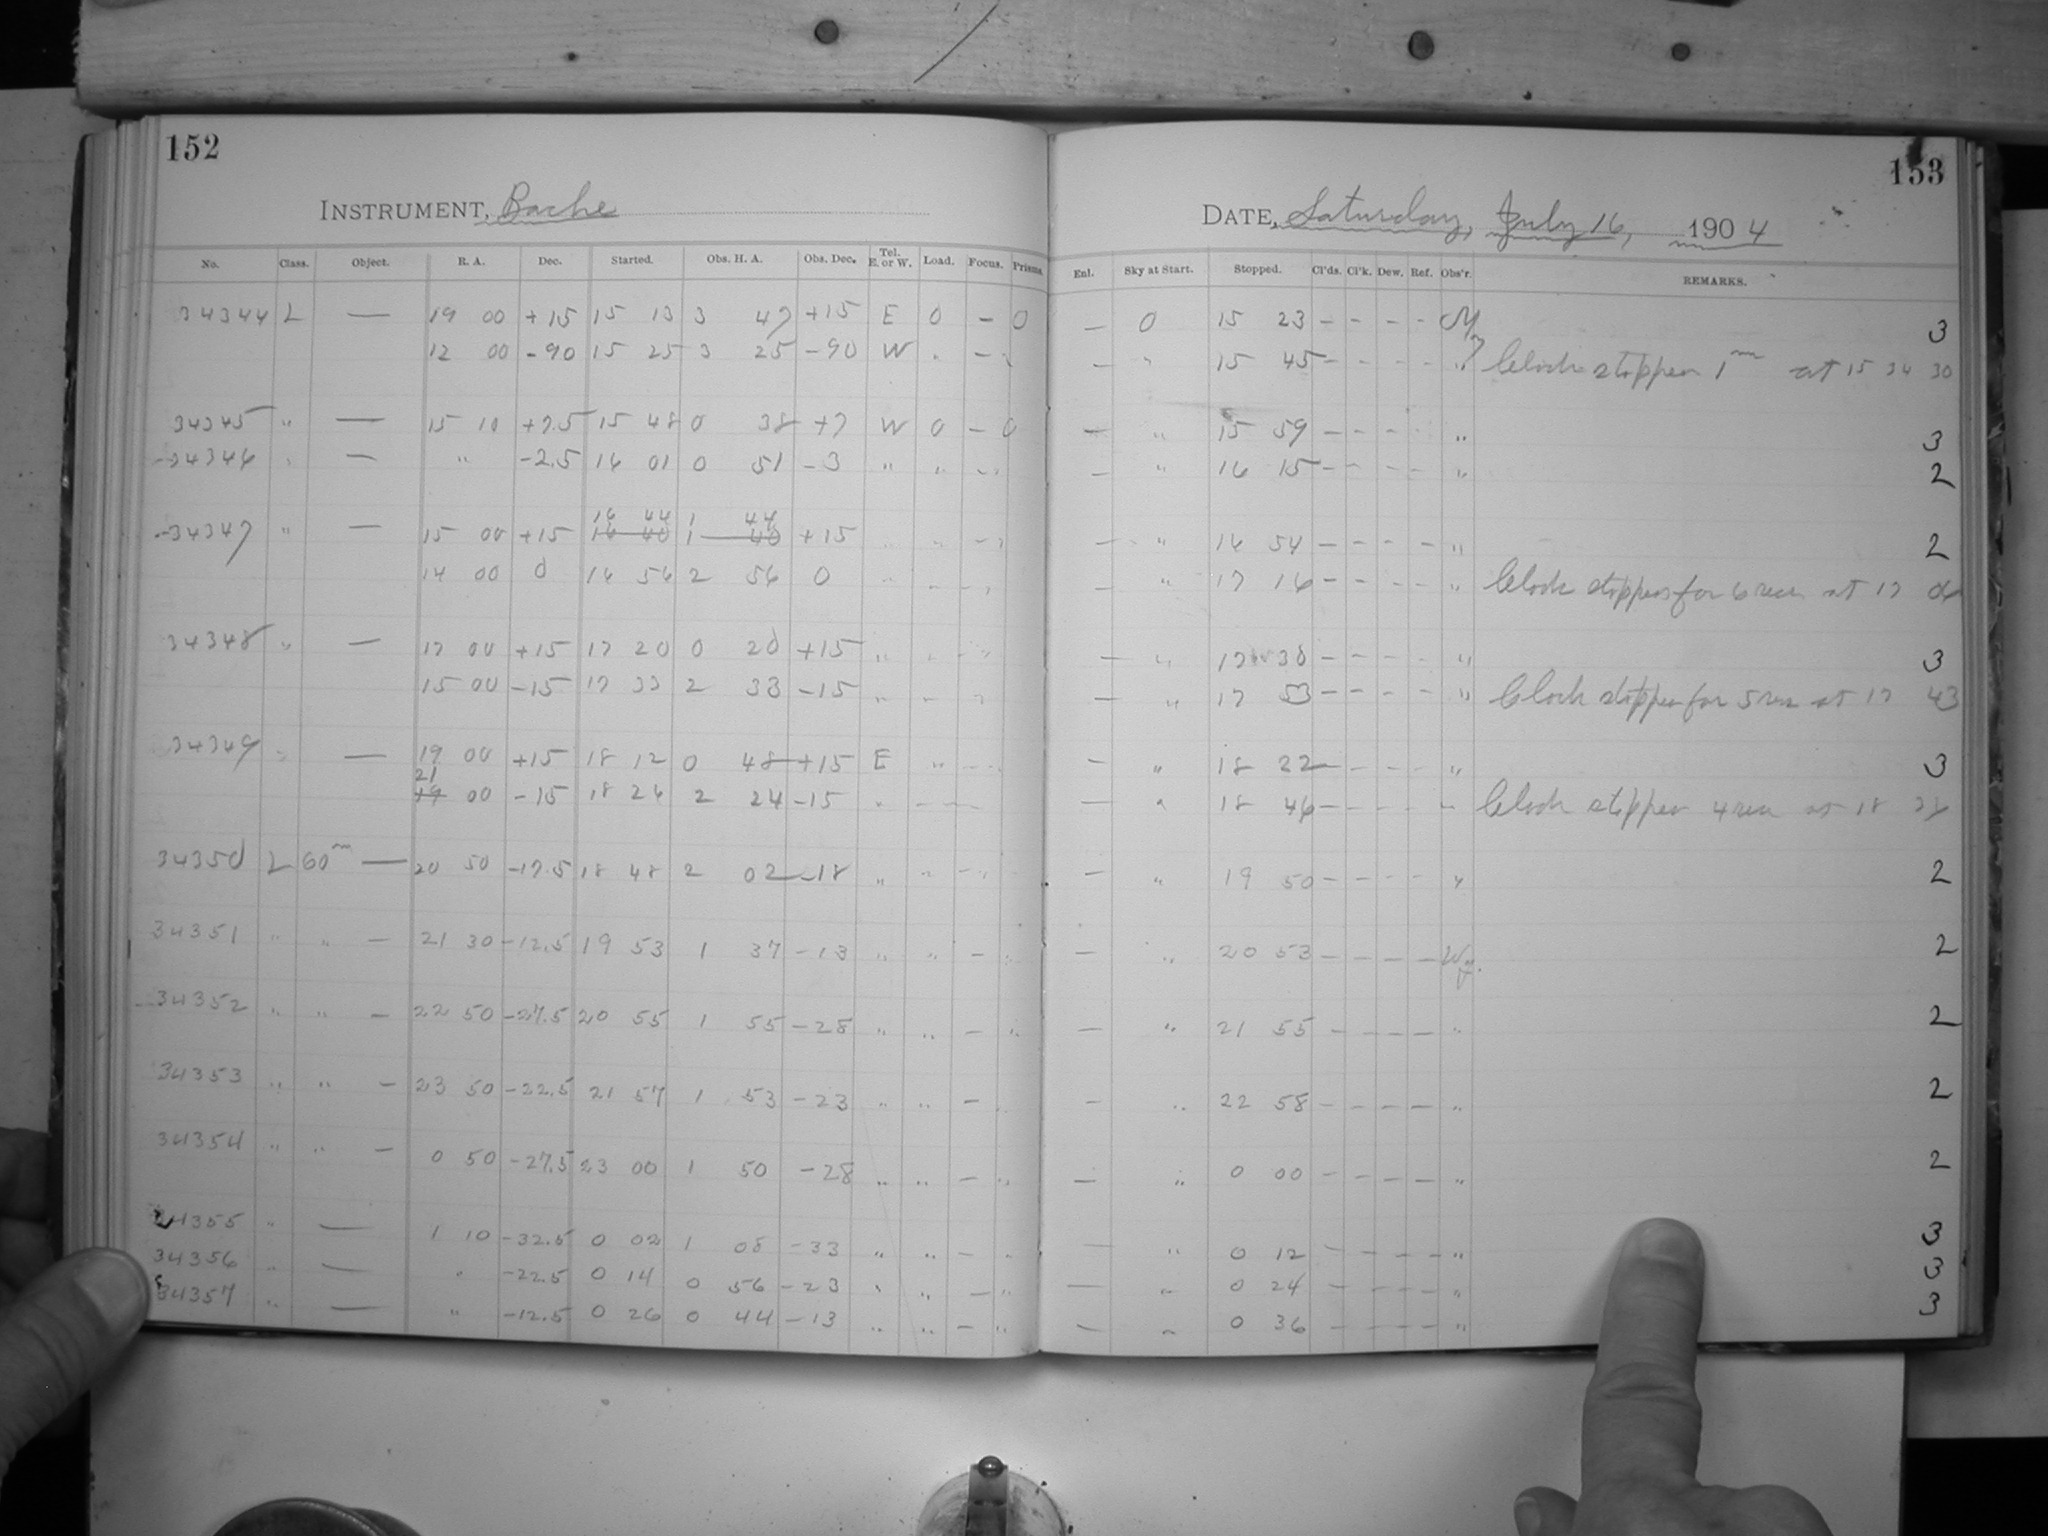 152
153
INSTRUMENT, Bache
DATE, Saturday, July 16, 1904
No. Class. Object. R. A. Dec. Started. Obs. H. A. Obs. Dec. Tel. E. or W. Load. Focus. Prisms. Enl. Sky at Start. Stopped. Cl'ds. Cl'k. Dew. Ref. Obs'r. REMARKS.
34344 L — 19 00 +15 15 13 3 47 +15 E 0 – 0 — 0 15 23 – – – – M 3
12 00 -90 15 25 3 25 -90 W " – " — " 15 45 – – – – " Clock stopped 1m at 15 34 30
34345 " — 15 10 +7.5 15 48 0 38 +7 W 0 – 0 — " 15 59 – – – – " 3
34346 " — " -2.5 16 01 0 51 -3 " " – " — " 16 15 – – – – " 2
16 44 1 44
34347 " — 15 00 +15 16 40 1 40 +15 " " – " — " 16 54 – – – – " 2
14 00 0 16 56 2 56 0 " – – " — " 17 16 – – – – " Clock stopped for 6 sec at 17 06
34348 " — 17 00 +15 17 20 0 20 +15 " " – " — " 17 30 – – – – " 3
15 00 -15 17 33 2 33 -15 " – – " — " 17 53 – – – – " Clock stopped for 5 sec at 17 43
34349 " — 19 00 +15 18 12 0 48 +15 E " – – — " 18 22 – – – – " 3
21
19 00 -15 18 26 2 24 -15 " – – – — " 18 46 – – – – " Clock stopped 4 sec at 18 36
34350 L 60m — 20 50 -17.5 18 48 2 02 -18 " " – " — " 19 50 – – – – " 2
34351 " " – 21 30 -12.5 19 53 1 37 -13 " " – " — " 20 53 – – – – Wy. 2
34352 " " – 22 50 -27.5 20 55 1 55 -28 " " – " — " 21 55 – – – – " 2
34353 " " – 23 50 -22.5 21 57 1 53 -23 " " – " — " 22 58 – – – – " 2
34354 " " – 0 50 -27.5 23 00 1 50 -28 " " – " — " 0 00 – – – – " 2
34355 " — 1 10 -32.5 0 02 1 08 -33 " " – " — " 0 12 – – – – " 3
34356 " — " -22.5 0 14 0 56 -23 " " – " — " 0 24 – – – – " 3
34357 " — " -12.5 0 26 0 44 -13 " " – " — " 0 36 – – – – " 3